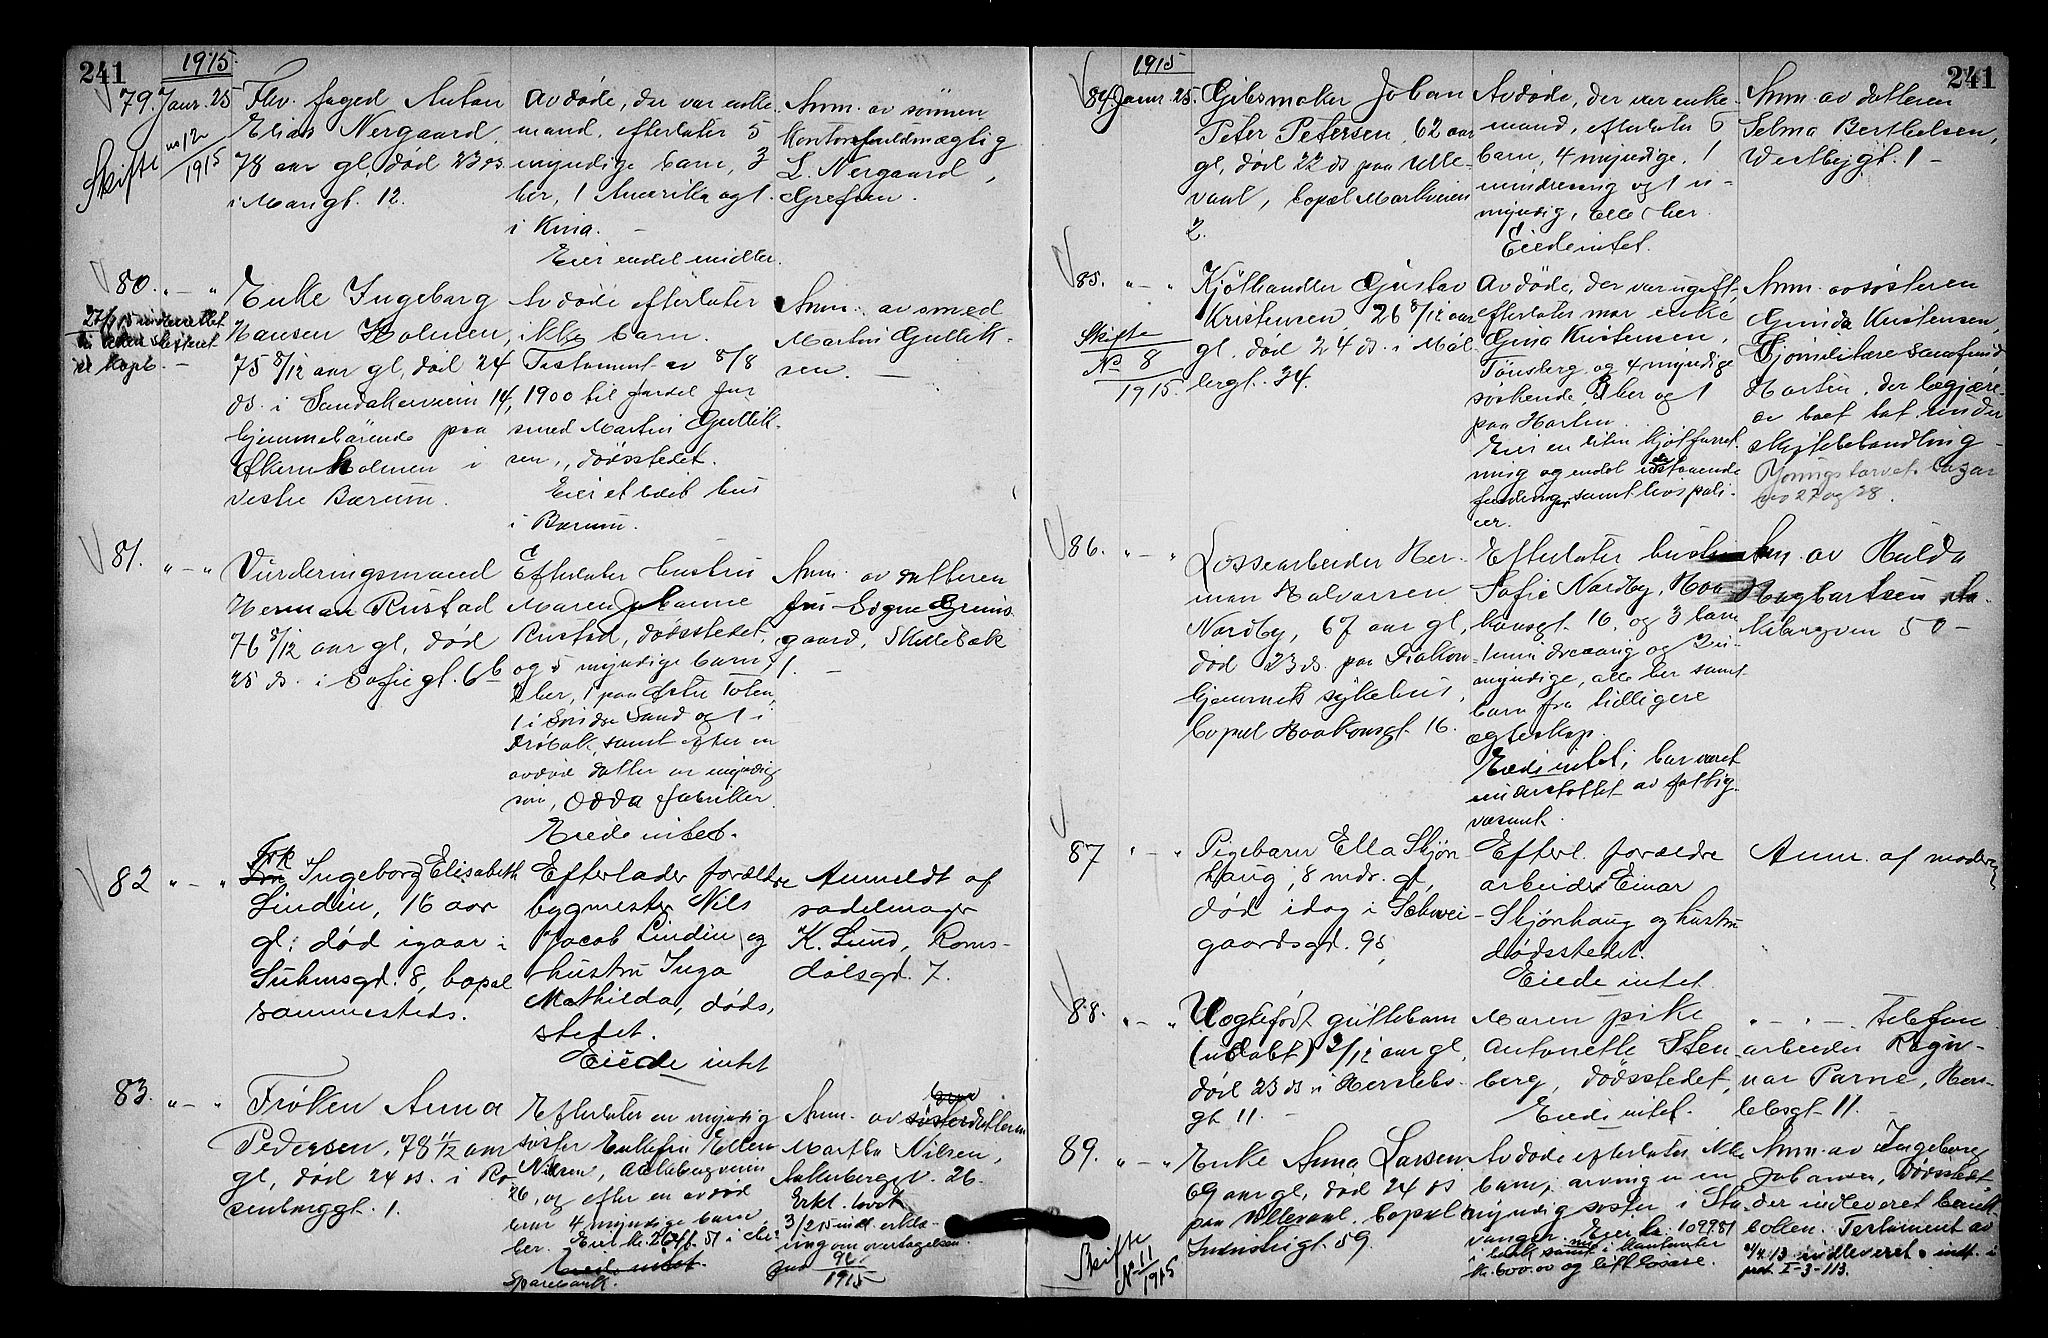 241
1915
79. Januar 25
Skifte
no 12
1915
Fhv. foged Anton
Elias Nergaard
78 aar gl, død 23 ds.
i Marigt. 12.
Avdøde, der var enke-
mand, efterlater 5
myndige barn, 3
her, 1 Amerika og 1
i Kina.
Eier endel midler.
Anm. av sønnen
Kontorfuldmægtig
L. Nergaard,
Grefsen.
80. " — "
Enke Ingeborg
Hansen Holmen,
75 8/12 aar gl, død 24
ds. i Sandakerveien 14,
hjemmehörende paa
holmen i
vestre Bærum.
Avdøde efterlater
ikke barn.
Testament av 8/8
1900 til fordel for
smed Martin Gullik-
sen, dødsstedet.
Eier et litet hus
i Bærum.
Anm. av smed
Martin Gullik-
sen. —
81. " — "
Vurderingsmand
Herman Rustad
76 5/12 aar gl, død
25 ds. i Sofiegt. 6b
Efterlater hustru
Maren Johanne
Rustad, dødsstedet,
og 5 myndige barn,
2 her, 1 paa Østre Toten,
1 i Søndre Sand og 1 i
Drøbak, samt efter en
avdød datter en myndig
søn, Odda fabrikker.
Eiede intet.
Anm. av datteren
fru Signe Gruns-
gaard, Skillebæk
1. —
82 " — "
Frk
Ingeborg Elisabeth
Lindin, 16 aar
gl. død igaar i
Suhmsgd. 8, bopæl
sammesteds.
Efterlader forældre
bygmester Nils
Jacob Lindin og
hustru Inga
Mathilda, døds-
stedet.
Eiede intet
Anmeldt af
sadelmager
K. Lund, Roms-
dalsgd. 7.
83. " — "
Frøken Anna
Pedersen, 78 11/12 aar
gl, død 24 ds. i Ro
senborggt. 1.
Efterlater en myndig
søster Enkefru Ellen
Nilsen, Aakebergveien
26, og efter en avdød
bror 4 myndige barn
her. Eier kr. 264.51 i Chr.
Eiede intet.
Sparebank.
Anm. av brordatteren
Martha Nilsen,
Aakebergv. 26.
Erkl. lovet
3/2 15 indl. erklæ-
ring om overtagelsen.
96
1915
241
1915
84 Januar 25.
Gibsmaker Johan
Peter Petersen, 62 aar
gl, død 22 ds paa Ulle-
vaal, bopæl Markveien
2.
Avdøde, der var enke-
mand, efterlater 6
barn, 4 myndige, 1
mindreaarig og 1 u-
myndig, alle her.
Eiede intet.
Anm. av datteren
Selma Berthelsen,
Vestbygt. 1 —
85. " — "
Skifte
No 8
1915.
Kjøthandler Gustav
Kristensen, 26 8/12 aar
gl. død 24 ds. i Møl-
lergt. 34.
Avdøde, der var ugift,
efterlater mor enke
Gina Kristensen,
Tönsberg, og 4 myndige
søskende, 3 her og 1
paa Horten.
Eier en liten kjøtforret-
ning og endel utestaaende
fordringer samt livspoli-
cer.
Anm. av søsteren
Gunda Kristensen,
Sjømilitære Samfund
Horten, der begjære-
de boet tat under
skiftebehandling —
Youngstorvet basar
no 27 og 28.
86. " — "
Lossearbeider Her-
man Halvorsen
Nordby, 67 aar gl,
død 23 ds. paa Diakon-
hjemmets sykehus,
bopæl Haakonsgt. 16.
Efterlater hustru
Sofie Nordby, Haa-
konsgt. 16, og 3 barn
1 mindreaarig og 2 u-
myndige, alle her samt
barn fra tidligere
ægteskap.
Eiede intet; har været
understøttet av fattig-
væsenet.
Anm. av Hulda
Hagbartsen,
50 —
87 " — "
Pigebarn Ella Skjøn-
haug, 8 mdr. gl,
død idag i Schwei-
gaardsgd. 95,
Efterl. forældre
arbeider Einar
Skjønhaug og hustru
dødsstedet.
Eiede intet.
Anm. af moderen
88. " — "
Uegtefødt guttebarn
(udøbt) 2/12 aar gl,
død 23 ds i Herslebs-
gt 11. —
Moren pike
Antonette Sten-
berg, dødsstedet,
Eiede intet.
" — " — Telefon
arbeider Ragn-
var Parne, Hers-
lebsgt. 11. —
89. " — "
Skifte
No 11
1915
Enke Anna Larsen
69 aar gl, død 24 ds
paa Ullevaal, bopæl
Industrigt. 59.
Avdøde efterlater ikke
barn; arving er en
myndig søster i Sta-
vanger. Eier kr. 1099.81
i bank samt i kontanter
kr. 600.00 og litt løsøre.
Anm. av Ingeborg
Johansen, dødsstedet
der indleveret bank-
boken. Testament av
4/4 13 indleveret. indt. i
prot. I-3-113.